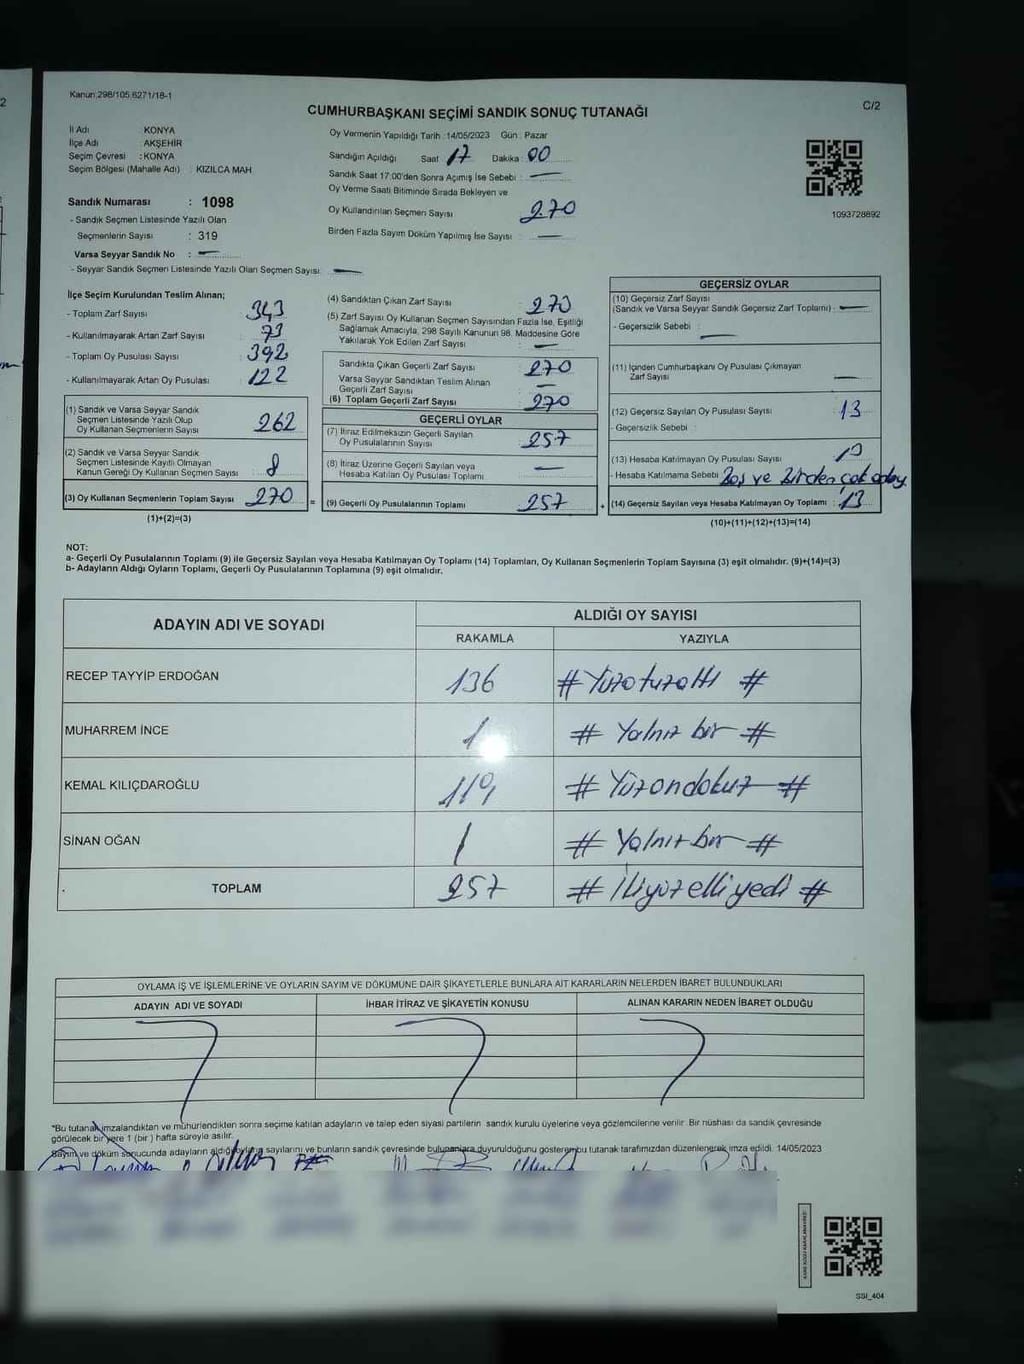 Kanun:298/105,6271/18-1
CUMHURBAŞKANI SEÇİMİ SANDIK SONUÇ TUTANAĞI
C/2
İl Adı KONYA
İlçe Adı : AKŞEHİR
Seçim Çevresi : KONYA
Seçim Bölgesi (Mahalle Adı) : KIZILCA MAH
Sandık Numarası : 1098
- Sandık Seçmen Listesinde Yazılı Olan
Seçmenlerin Sayısı : 319
Varsa Seyyar Sandık No :
- Seyyar Sandık Seçmen Listesinde Yazılı Olan Seçmen Sayısı:
Oy Vermenin Yapıldığı Tarih :14/05/2023 Gün : Pazar
Sandığın Açıldığı Saat 17 Dakika : 00
Sandık Saat 17:00'den Sonra Açımış İse Sebebi :
Oy Verme Saati Bitiminde Sırada Bekleyen ve
Oy Kullandırılan Seçmen Sayısı 270
Birden Fazla Sayım Döküm Yapılmış İse Sayısı :
1093728892
İlçe Seçim Kurulundan Teslim Alınan;
- Toplam Zarf Sayısı 343
- Kullanılmayarak Artan Zarf Sayısı 73
- Toplam Oy Pusulası Sayısı 392
- Kullanılmayarak Artan Oy Pusulası 122
(1) Sandık ve Varsa Seyyar Sandık
Seçmen Listesinde Yazılı Olup
Oy Kullanan Seçmenlerin Sayısı 262
(2) Sandık ve Varsa Seyyar Sandık
Seçmen Listesinde Kayıtlı Olmayan
Kanun Gereği Oy Kullanan Seçmen Sayısı 8
(3) Oy Kullanan Seçmenlerin Toplam Sayısı 270 =
(1)+(2)=(3)
(4) Sandıktan Çıkan Zarf Sayısı 270
(5) Zarf Sayısı Oy Kullanan Seçmen Sayısından Fazla İse, Eşitliği
Sağlamak Amacıyla, 298 Sayılı Kanunun 98. Maddesine Göre
Yakılarak Yok Edilen Zarf Sayısı :
Sandıkta Çıkan Geçerli Zarf Sayısı 270
Varsa Seyyar Sandıktan Teslim Alınan
Geçerli Zarf Sayısı
(6) Toplam Geçerli Zarf Sayısı 270
GEÇERLİ OYLAR
(7) İtiraz Edilmeksizin Geçerli Sayılan
Oy Pusulalarının Sayısı 257
(8) İtiraz Üzerine Geçerli Sayılan veya
Hesaba Katılan Oy Pusulası Toplamı
(9) Geçerli Oy Pusulalarının Toplamı 257 +
GEÇERSİZ OYLAR
(10) Geçersiz Zarf Sayısı
(Sandık ve Varsa Seyyar Sandık Geçersiz Zarf Toplamı) :
- Geçersizlik Sebebi :
(11) İçinden Cumhurbaşkanı Oy Pusulası Çıkmayan
Zarf Sayısı
(12) Geçersiz Sayılan Oy Pusulası Sayısı : 13
- Geçersizlik Sebebi :
(13) Hesaba Katılmayan Oy Pusulası Sayısı
- Hesaba Katılmama Sebebi : Boş ve birden çok aday
(14) Geçersiz Sayılan veya Hesaba Katılmayan Oy Toplamı : 13
(10)+(11)+(12)+(13)=(14)
NOT:
a- Geçerli Oy Pusulalarının Toplamı (9) ile Geçersiz Sayılan veya Hesaba Katılmayan Oy Toplamı (14) Toplamları, Oy Kullanan Seçmenlerin Toplam Sayısına (3) eşit olmalıdır. (9)+(14)=(3)
b- Adayların Aldığı Oyların Toplamı, Geçerli Oy Pusulalarının Toplamına (9) eşit olmalıdır.
ADAYIN ADI VE SOYADI ALDIĞI OY SAYISI
RAKAMLA YAZIYLA
RECEP TAYYİP ERDOĞAN 136 # Yüzotuzaltı #
MUHARREM İNCE 1 # Yalnız bir #
KEMAL KILIÇDAROĞLU 119 # Yüzondokuz #
SİNAN OĞAN 1 # Yalnız bir #
TOPLAM 257 # İkiyüzelliyedi #
OYLAMA İŞ VE İŞLEMLERİNE VE OYLARIN SAYIM VE DÖKÜMÜNE DAİR ŞİKAYETLERLE BUNLARA AİT KARARLARIN NELERDEN İBARET BULUNDUKLARI
ADAYIN ADI VE SOYADI İHBAR İTİRAZ VE ŞİKAYETİN KONUSU ALINAN KARARIN NEDEN İBARET OLDUĞU
*Bu tutanak imzalandıktan ve mühürlendikten sonra seçime katılan adayların ve talep eden siyasi partilerin sandık kurulu üyelerine veya gözlemcilerine verilir. Bir nüshası da sandık çevresinde
görülecek bir yere 1 (bir) hafta süreyle asılır.
Sayım ve döküm sonucunda adayların aldığı oyların sayılarını ve bunların sandık çevresinde bulunanlara duyurulduğunu gösteren bu tutanak tarafımızdan düzenlenerek imza edildi. 14/05/2023
SSI_404